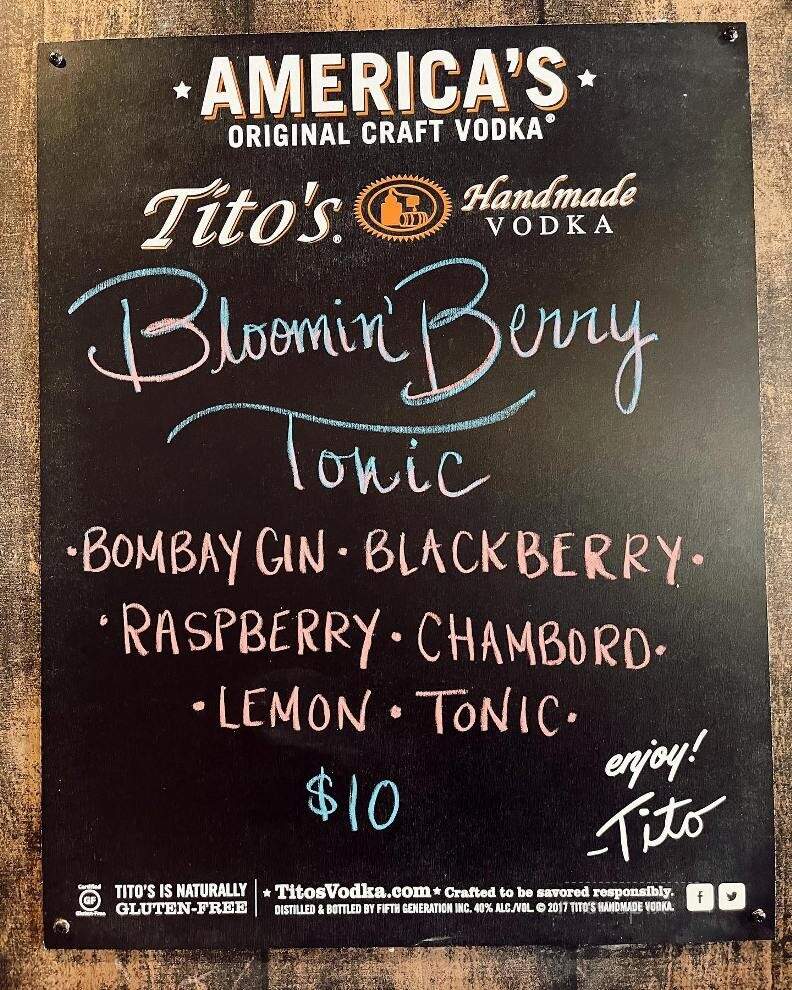 AMERICA'S
ORIGINAL CRAFT VODKA®
Tito's® Handmade
VODKA
Bloomin' Berry
Tonic
·BOMBAY GIN · BLACKBERRY·
·RASPBERRY · CHAMBORD·
·LEMON · TONIC·
$10
enjoy!
-Tito
Certified
GF
Gluten-Free
TITO'S IS NATURALLY
GLUTEN-FREE
★ TitosVodka.com ★ Crafted to be savored responsibly.
DISTILLED & BOTTLED BY FIFTH GENERATION INC. 40% ALC./VOL. © 2017 TITO'S HANDMADE VODKA.